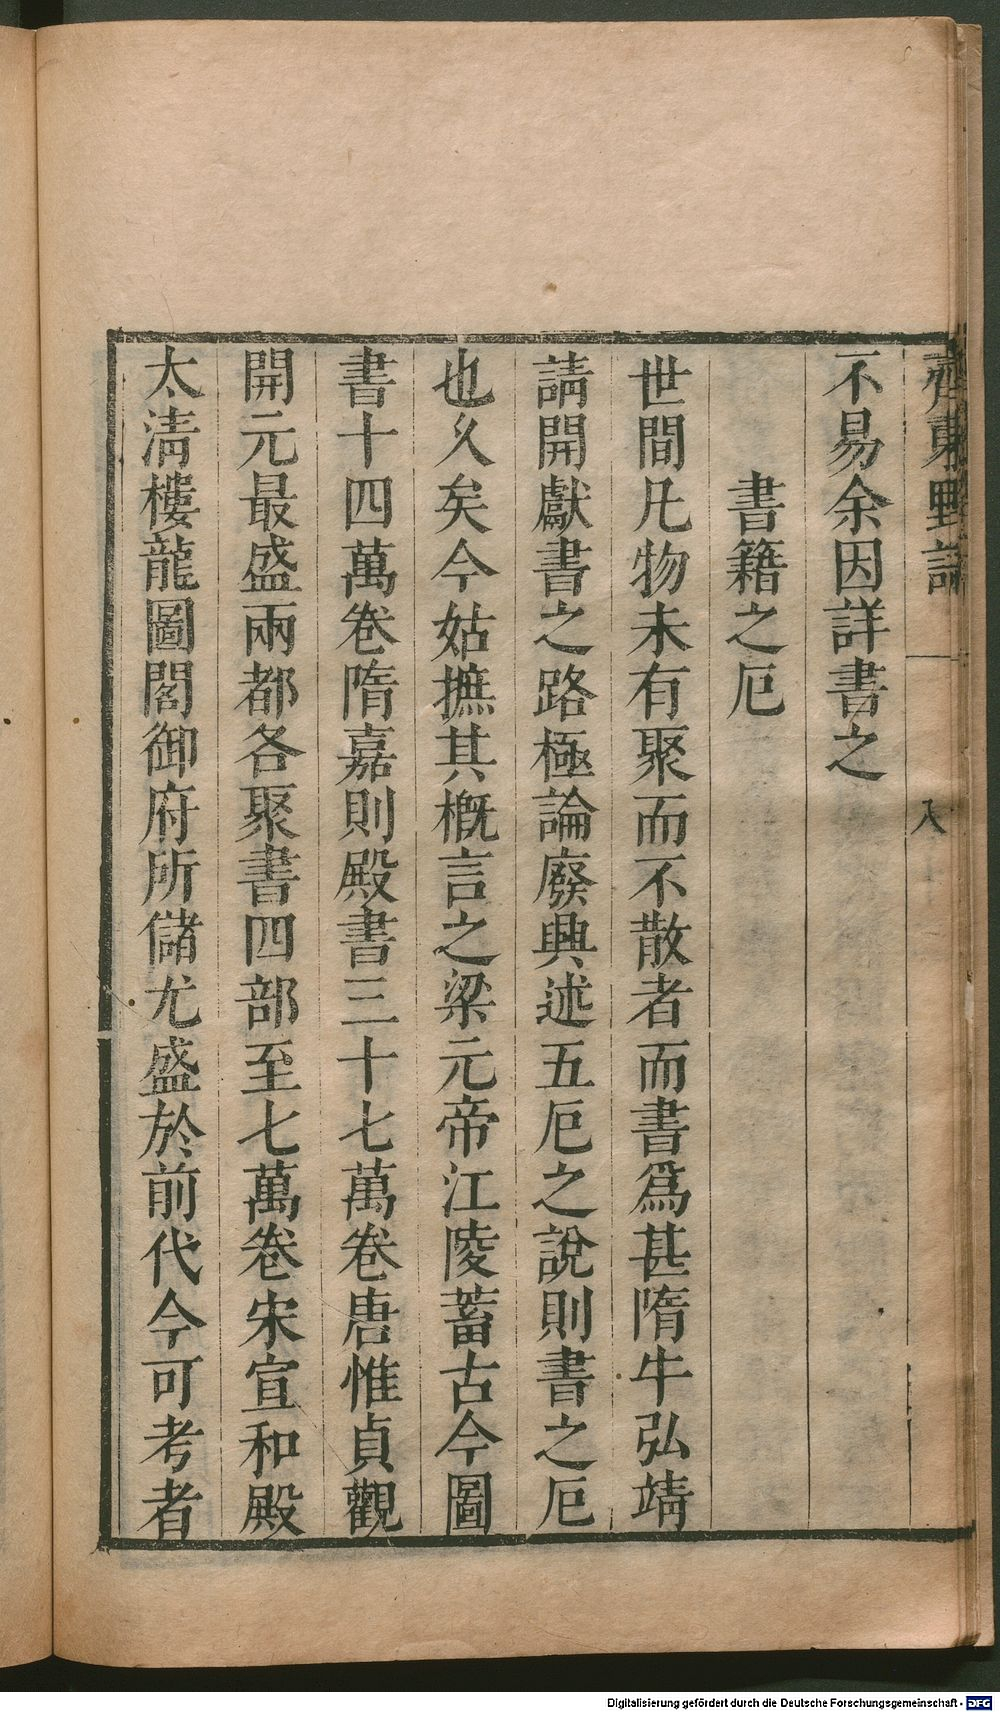 齊東野語
八
不易余因詳書之
書籍之厄
世間凡物未有聚而不散者而書爲甚隋牛弘靖
請開獻書之路極論廢興述五厄之說則書之厄
也久矣今姑撫其槪言之梁元帝江陵蓄古今圖
書十四萬卷隋嘉則殿書三十七萬卷唐惟貞觀
開元最盛兩都各聚書四部至七萬卷宋宣和殿
太淸樓龍圖閣御府所儲尤盛於前代今可考者
Digitalisierung gefördert durch die Deutsche Forschungsgemeinschaft - DFG